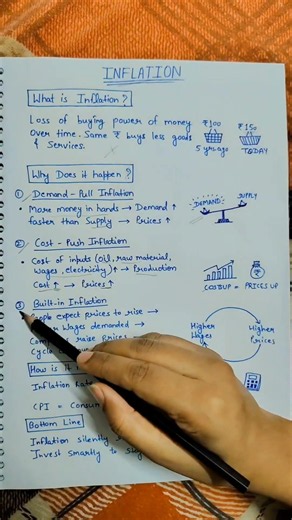 INFLATION
What is Inflation?
Loss of buying power of money
Over time. Same ₹ buys less goods
& Services.
₹100 ₹150
5 yrs ago TODAY
Why Does it happen?
① Demand - Pull Inflation
• More money in hands → Demand ↑
faster than Supply → Prices ↑
DEMAND SUPPLY
② Cost - Push Inflation
• Cost of inputs (oil, raw material,
wages, electricity) ↑ → Production
Cost ↑ → Prices ↑
₹
COST UP = PRICES UP
③ Built-in Inflation
expect prices to rise →
Wages demanded →
raise Prices
Cycle
Higher Wages
Higher Prices
How is
Inflation Rate
CPI =
Bottom Line
Inflation silently
Invest smartly to